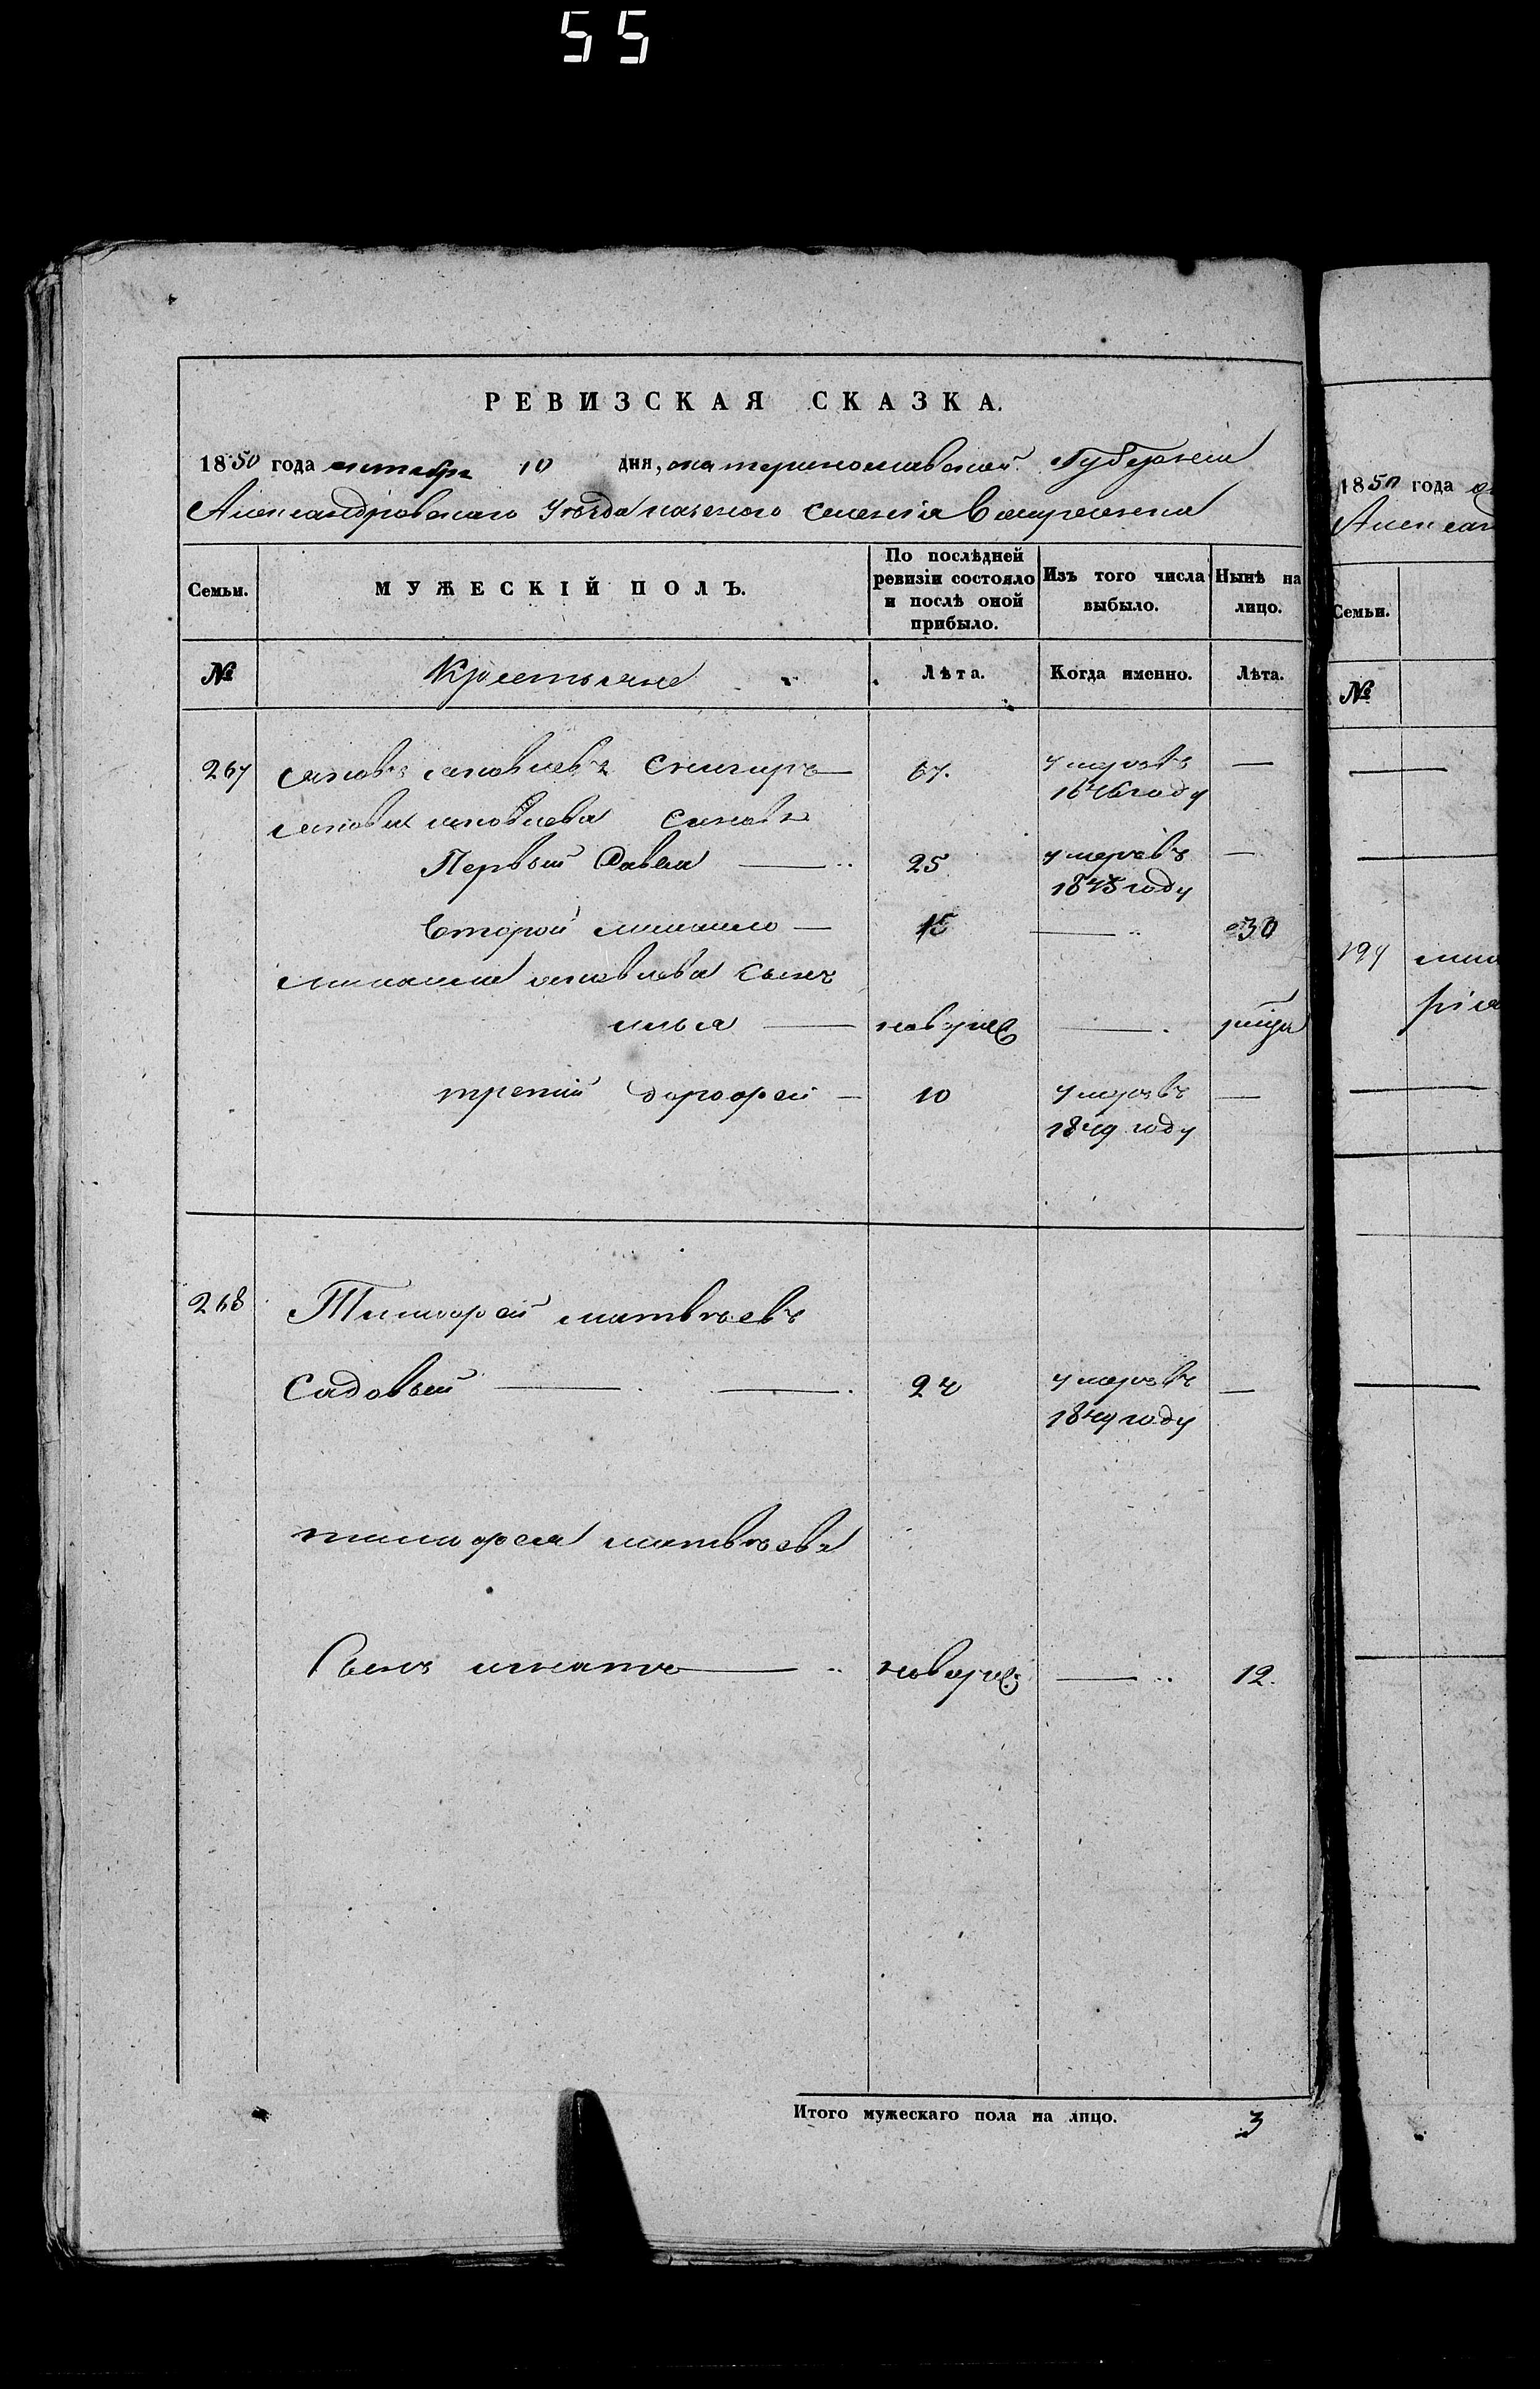 55
РЕВИЗСКАЯ СКАЗКА.
1850 года октября 10 дня, екатеринославской Губернии
Александровскаго Уѣзда казеного селения Воскресенка
Семьи. МУЖЕСКІЙ ПОЛЪ. По послѣдней ревизіи состояло и послѣ оной прибыло. Изъ того числа выбыло. Нынѣ на лицо.
№ Крестьяне Лѣта. Когда именно. Лѣта.
267 яковъ яковлевъ снигиръ — 67. умеръ въ —
1846 году
якова яковлева синовя
Первый Савва — 25 умеръ въ —
1845 году
Второй михаило — 15 — 30
михаила яковлева сынъ
илья — новорож —
третий дорофей — 10 умеръ въ —
1849 году
268 Тимофей матвѣевъ
Садовый — — 24 умеръ въ —
1849 году
тимофея матвѣева
Сынъ игнатъ — новорож — 12.
Итого мужескаго пола на лицо. 3
1850 года
Александ
Семьи.
№
194